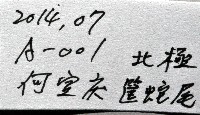 2014,07
A-001 北極
何宣庆 筐蛇尾